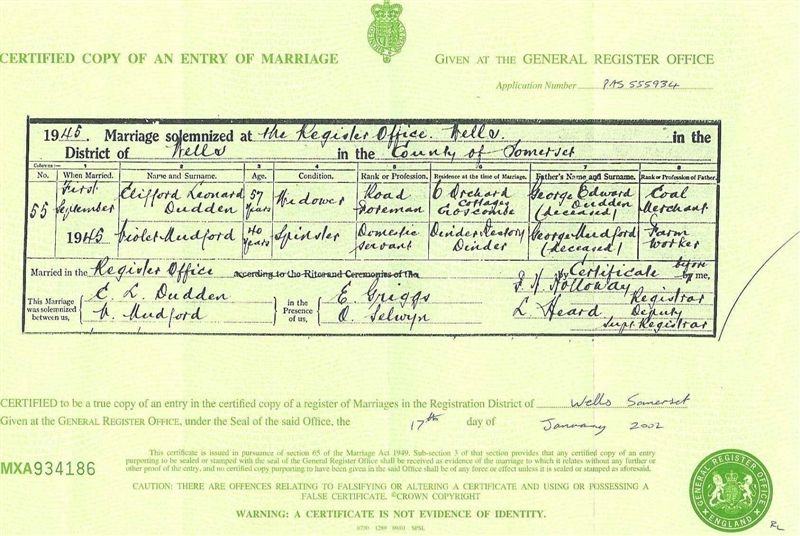 CERTIFIED COPY OF AN ENTRY OF MARRIAGE
GIVEN AT THE GENERAL REGISTER OFFICE
Application Number PAS 555934
1945. Marriage solemnized at the Register Office. Wells. in the
District of Wells in the County of Somerset
Columns:- 1 2 3 4 5 6 7 8
No. When Married. Name and Surname. Age. Condition. Rank or Profession. Residence at the time of Marriage. Father's Name and Surname. Rank or Profession of Father.
55 First September 1945 Clifford Leonard Dudden 57 years Widower Road Foreman 6 Orchard Cottages Croscombe George Edward Dudden (deceased) Coal Merchant
Violet Mudford 40 years Spinster Domestic servant Dinder Rectory Dinder George Mudford (deceased) Farm worker
Married in the Register Office according to the Rites and Ceremonies of the by Certificate before by me,
This Marriage was solemnized between us, C. L. Dudden V. Mudford in the Presence of us, E. Griggs O. Selwyn
F. H. Holloway Registrar
L. Heard Deputy Supt Registrar
CERTIFIED to be a true copy of an entry in the certified copy of a register of Marriages in the Registration District of Wells Somerset
Given at the GENERAL REGISTER OFFICE, under the Seal of the said Office, the 17th day of January 2002
MXA934186
This certificate is issued in pursuance of section 65 of the Marriage Act 1949. Sub-section 3 of that section provides that any certified copy of an entry
purporting to be sealed or stamped with the seal of the General Register Office shall be received as evidence of the marriage to which it relates without any further or
other proof of the entry, and no certified copy purporting to have been given in the said Office shall be of any force or effect unless it is sealed or stamped as aforesaid.
CAUTION: THERE ARE OFFENCES RELATING TO FALSIFYING OR ALTERING A CERTIFICATE AND USING OR POSSESSING A
FALSE CERTIFICATE. ©CROWN COPYRIGHT
WARNING: A CERTIFICATE IS NOT EVIDENCE OF IDENTITY.
GENERAL REGISTER OFFICE
ENGLAND
RL